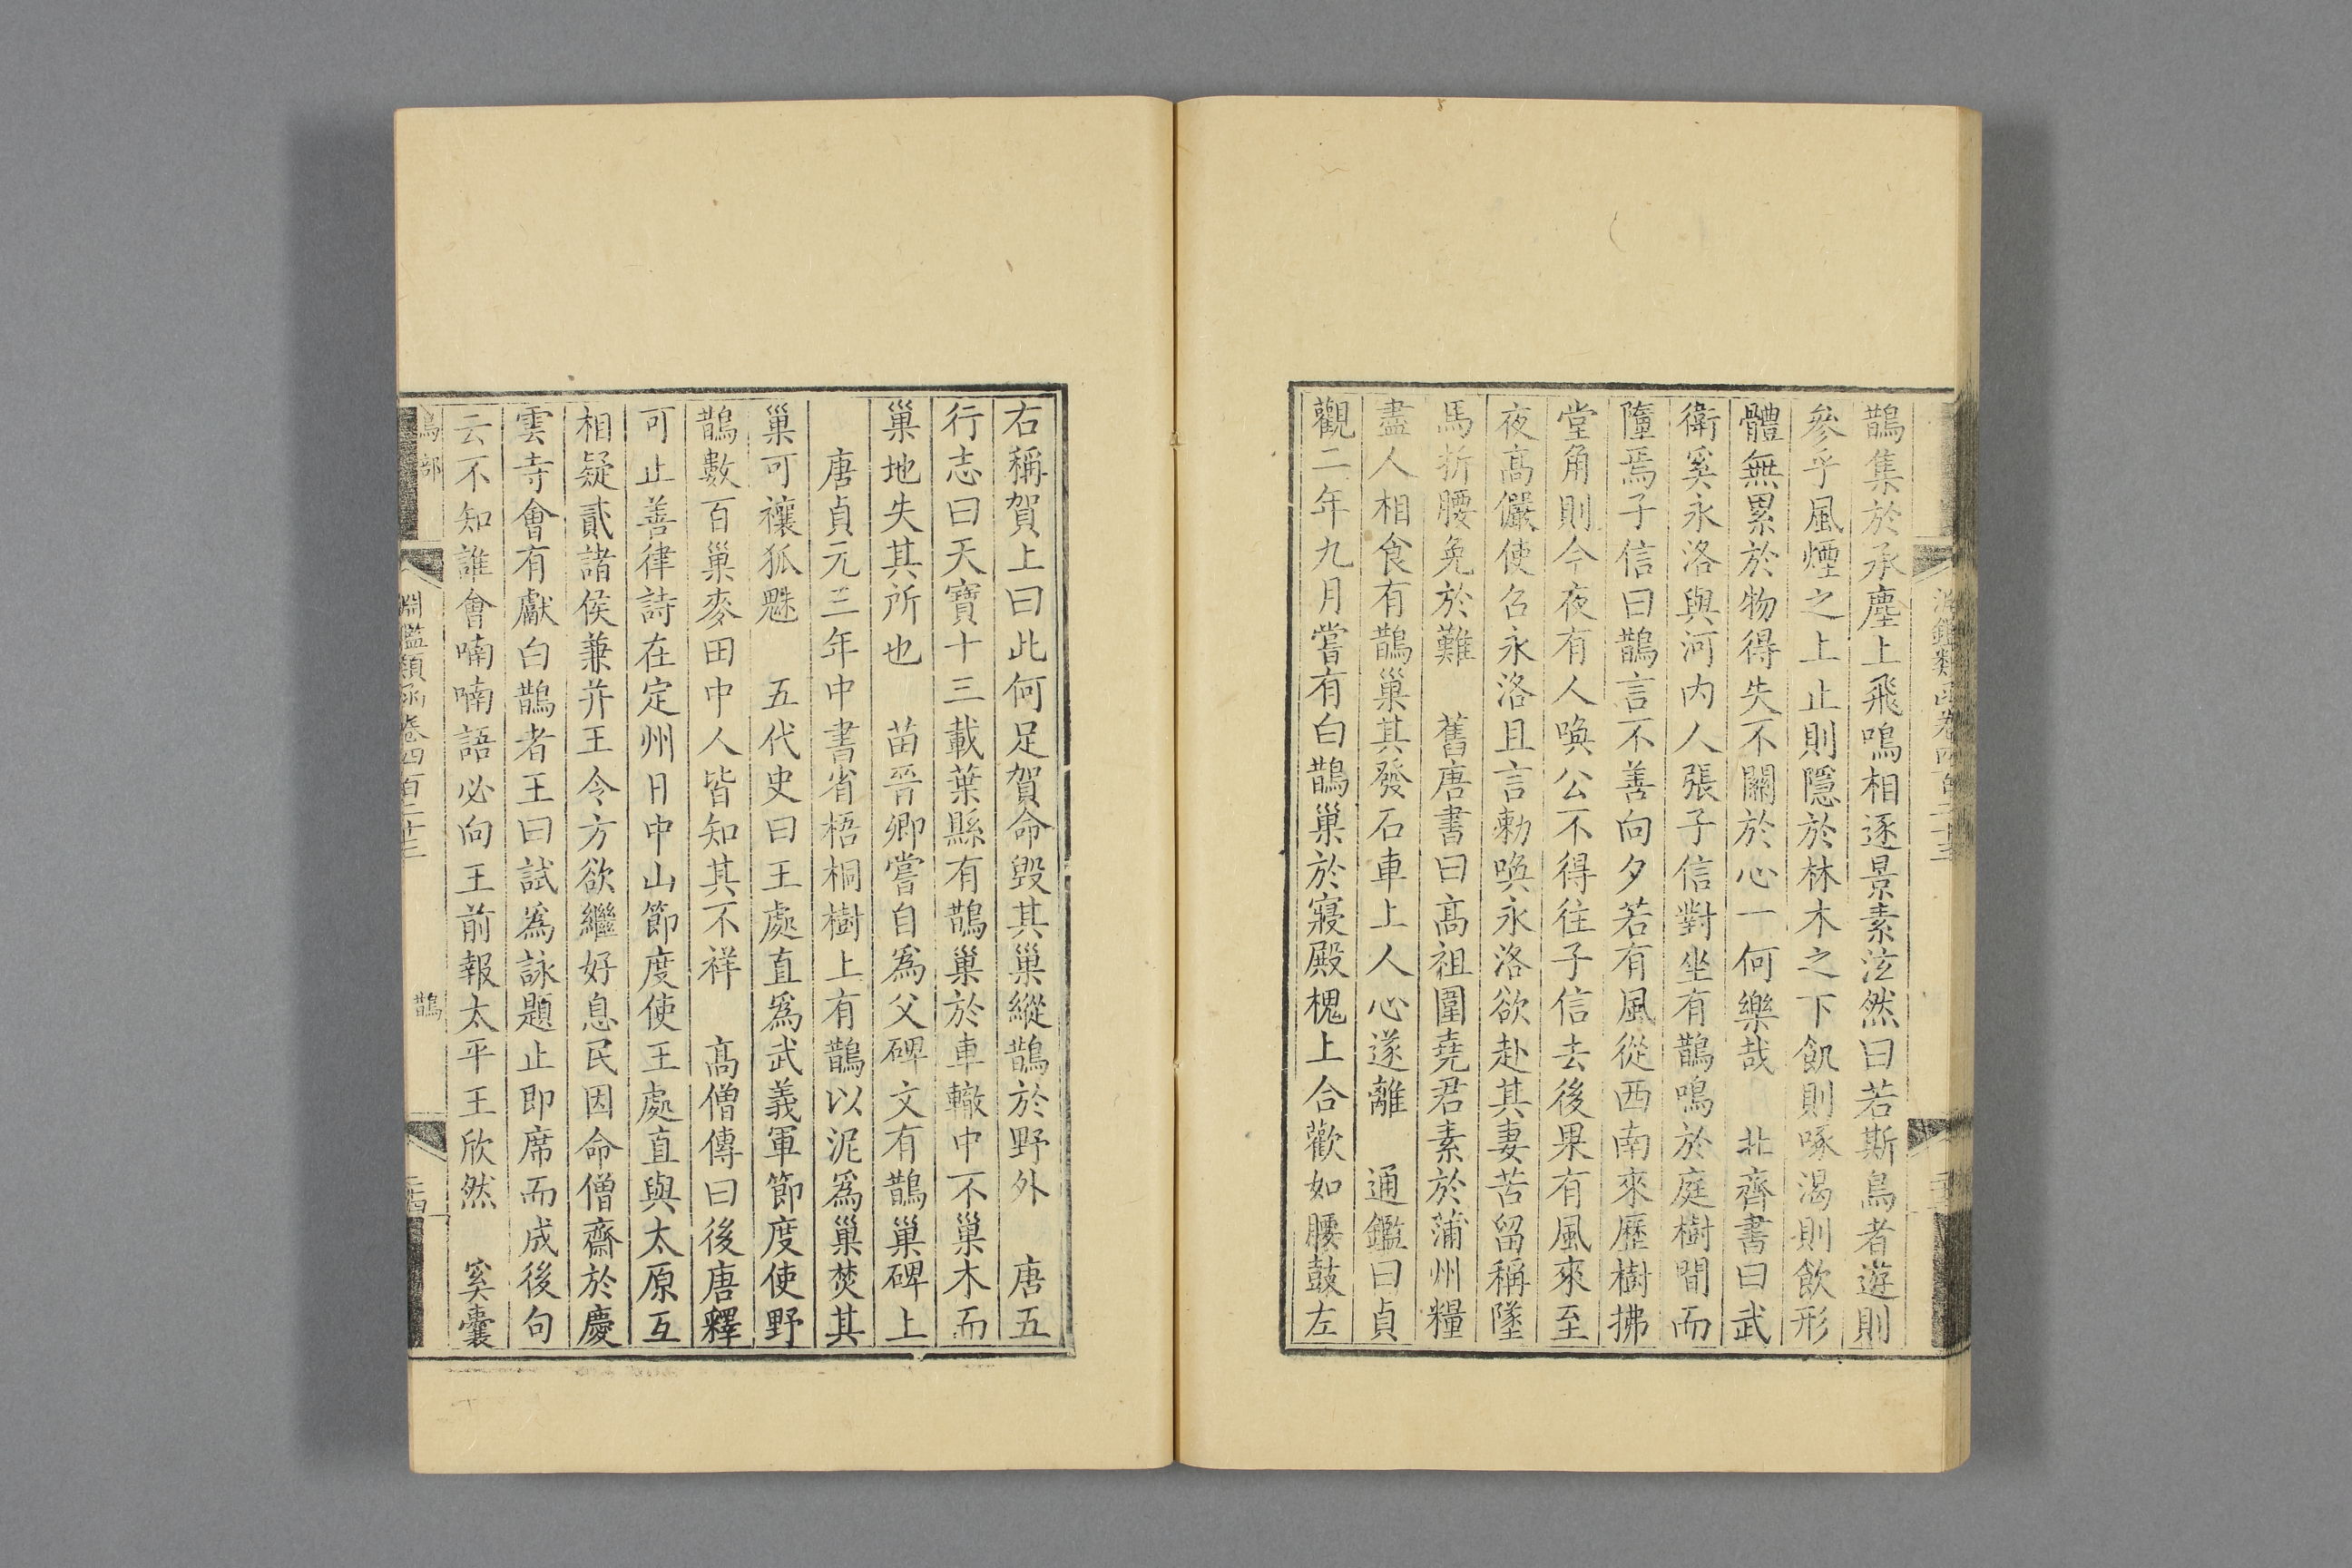 鵲集於承塵上飛鳴相逐景素泫然曰若斯鳥者遊則
參乎風煙之上止則隱於林木之下飢則啄渴則飲形
體無累於物得失不關於心一何樂哉　北齊書曰武
衛奚永洛與河内人張子信對坐有鵲鳴於庭樹間而
墮焉子信曰鵲言不善向夕若有風從西南來歷樹拂
堂角則今夜有人喚公不得往子信去後果有風來至
夜高儼使召永洛且言勅喚永洛欲赴其妻苦留稱墜
馬折腰免於難　舊唐書曰高祖圍堯君素於蒲州糧
盡人相食有鵲巢其發石車上人心遂離　通鑑曰貞
觀二年九月嘗有白鵲巢於寢殿槐上合歡如腰鼓左
右稱賀上曰此何足賀命毀其巢縱鵲於野外　唐五
行志曰天寶十三載葉縣有鵲巢於車轍中不巢木而
巢地失其所也　苗晉卿嘗自為父碑文有鵲巢碑上
唐貞元三年中書省梧桐樹上有鵲以泥為巢焚其
巢可禳狐魅　五代史曰王處直為武義軍節度使野
鵲數百巢麥田中人皆知其不祥　高僧傳曰後唐釋
可止善律詩在定州日中山節度使王處直與太原互
相疑貳諸侯兼并王令方欲繼好息民因命僧齋於慶
雲寺會有獻白鵲者王曰試為詠題止即席而成後句
云不知誰會喃喃語必向王前報太平王欣然　奚囊
鳥部　淵鑑類函卷四百二十三　鵲